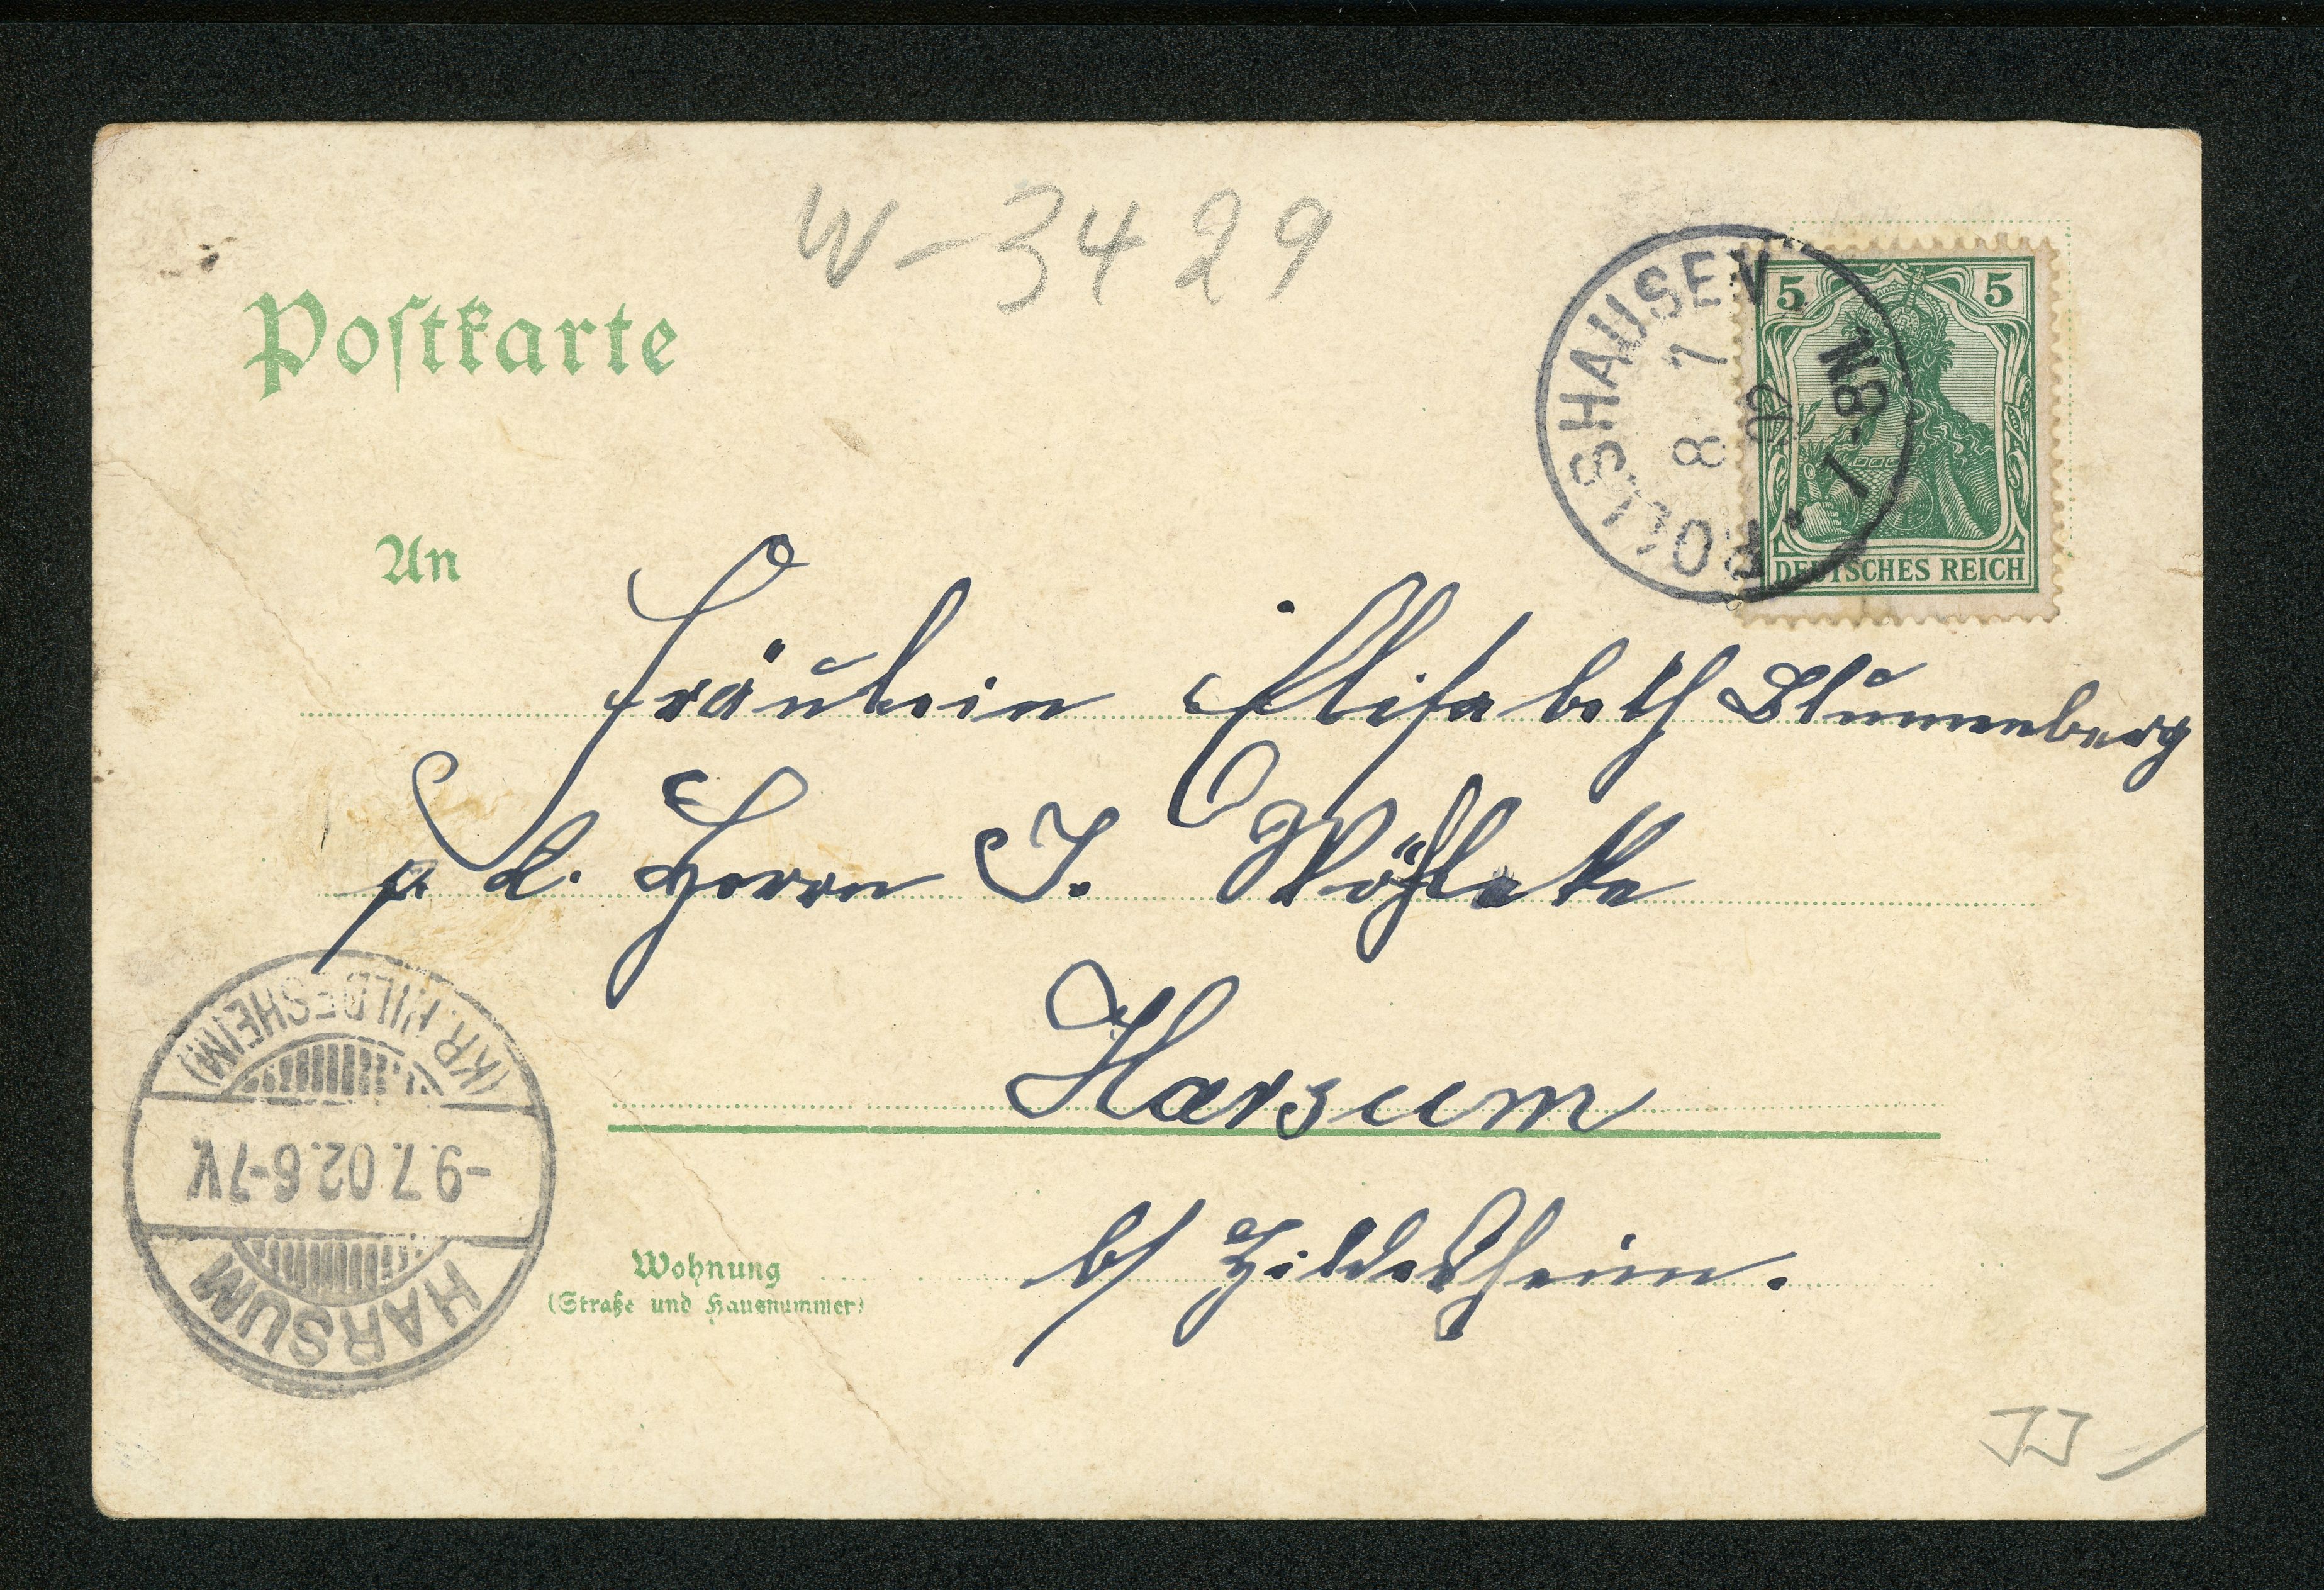 W-3429
Postkarte
ROLLSHAUSEN
8 7 02
7-8N
5 5
DEUTSCHES REICH
An
Fräulein Elisabeth Blumenberg
p. A. Herrn J.
Harsum
b/ Hildesheim.
(KR. HILDESHEIM)
-9.7.02.6-7V.
HARSUM
Wohnung
(Straße und Hausnummer)